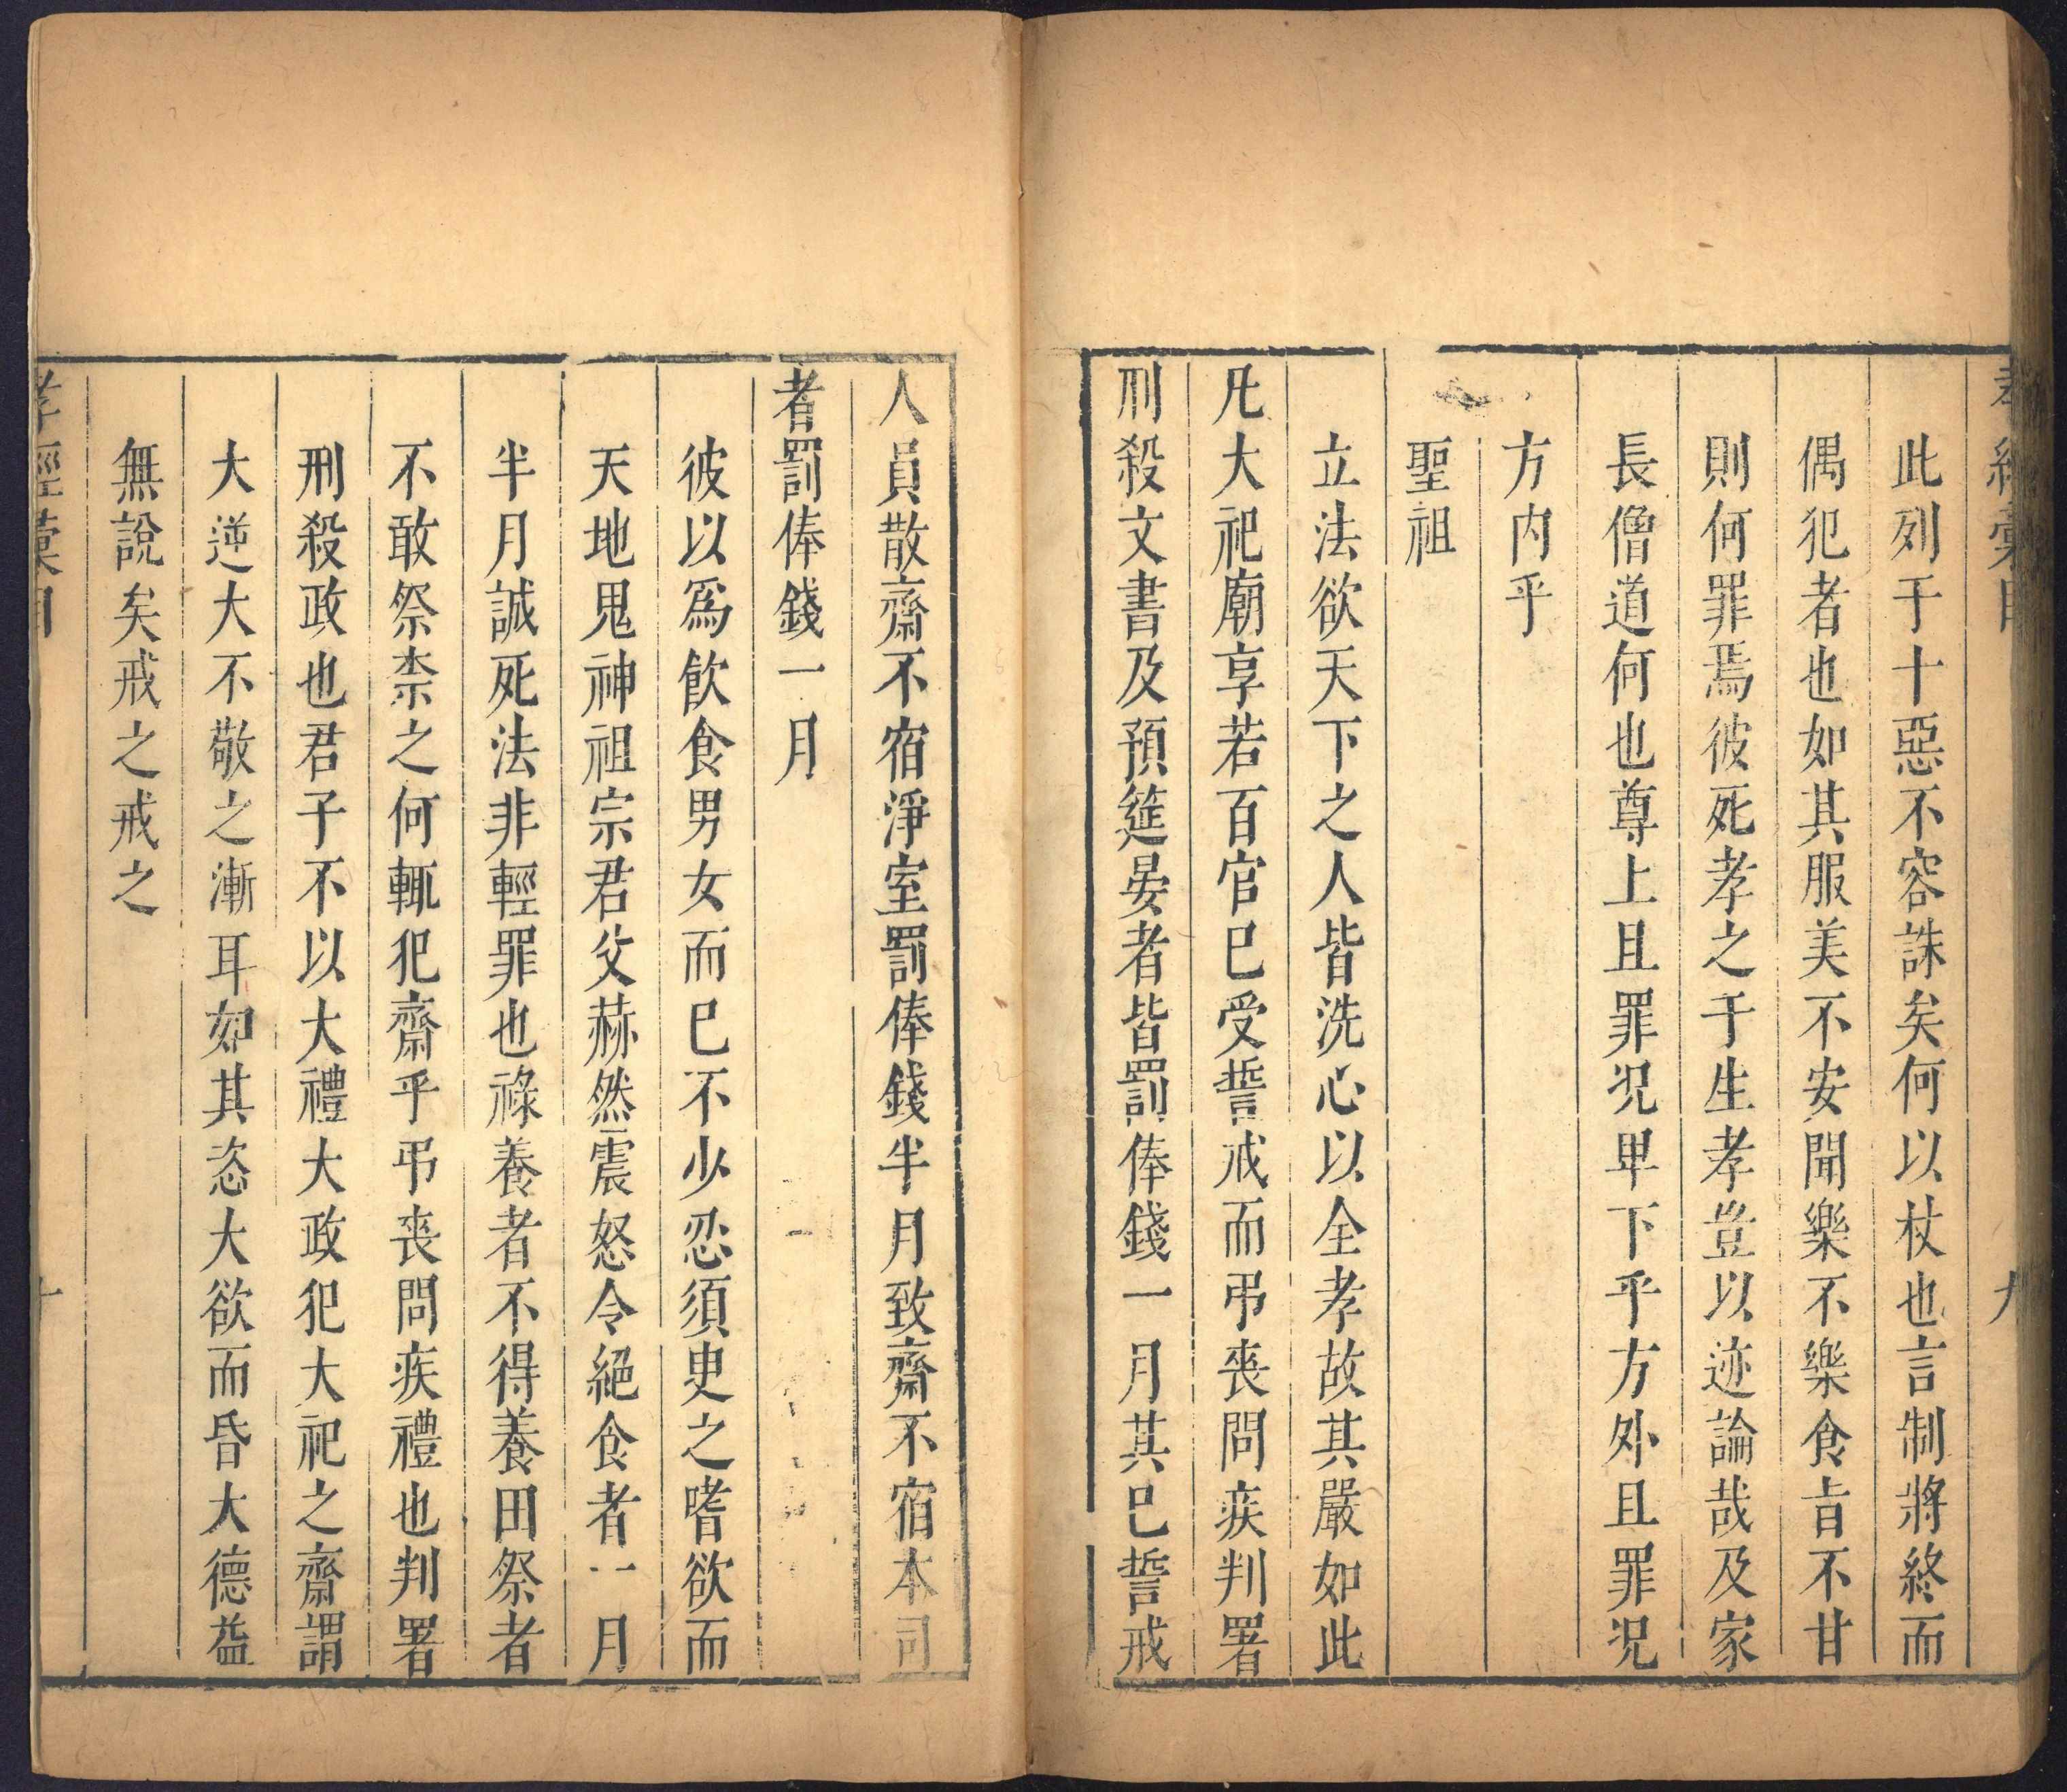 此列于十惡不容誅矣何以杖也言制將終而
偶犯者也如其服美不安聞樂不樂食旨不甘
則何罪焉彼死孝之于生孝豈以迹論哉及家
長僧道何也尊上且罪况卑下乎方外且罪况
方内乎
聖祖
立法欲天下之人皆洗心以全孝故其嚴如此
凡大祀廟享若百官已受誓戒而弔喪問疾判署
刑殺文書及預筵宴者皆罰俸錢一月其已誓戒
人員散齋不宿淨室罰俸錢半月致齋不宿本司
者罰俸錢一月
彼以爲飲食男女而已不少忍須臾之嗜欲而
天地鬼神祖宗君父赫然震怒令絕食者一月
半月誠死法非輕罪也祿養者不得養田祭者
不敢祭柰之何輒犯齋乎弔喪問疾禮也判署
刑殺政也君子不以大禮大政犯大祀之齋謂
大逆大不敬之漸耳如其恣大欲而昏大德益
無說矣戒之戒之